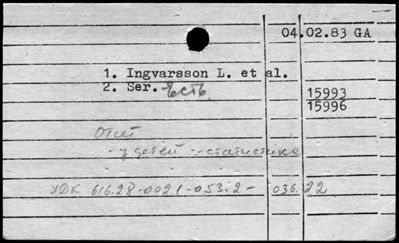 04.02.83 GA
1. Ingvarsson L. et al.
2. Ser. - есть
15993
15996
Отит
- у детей - статистика
УДК 616.28-002(-053.2- 036.22